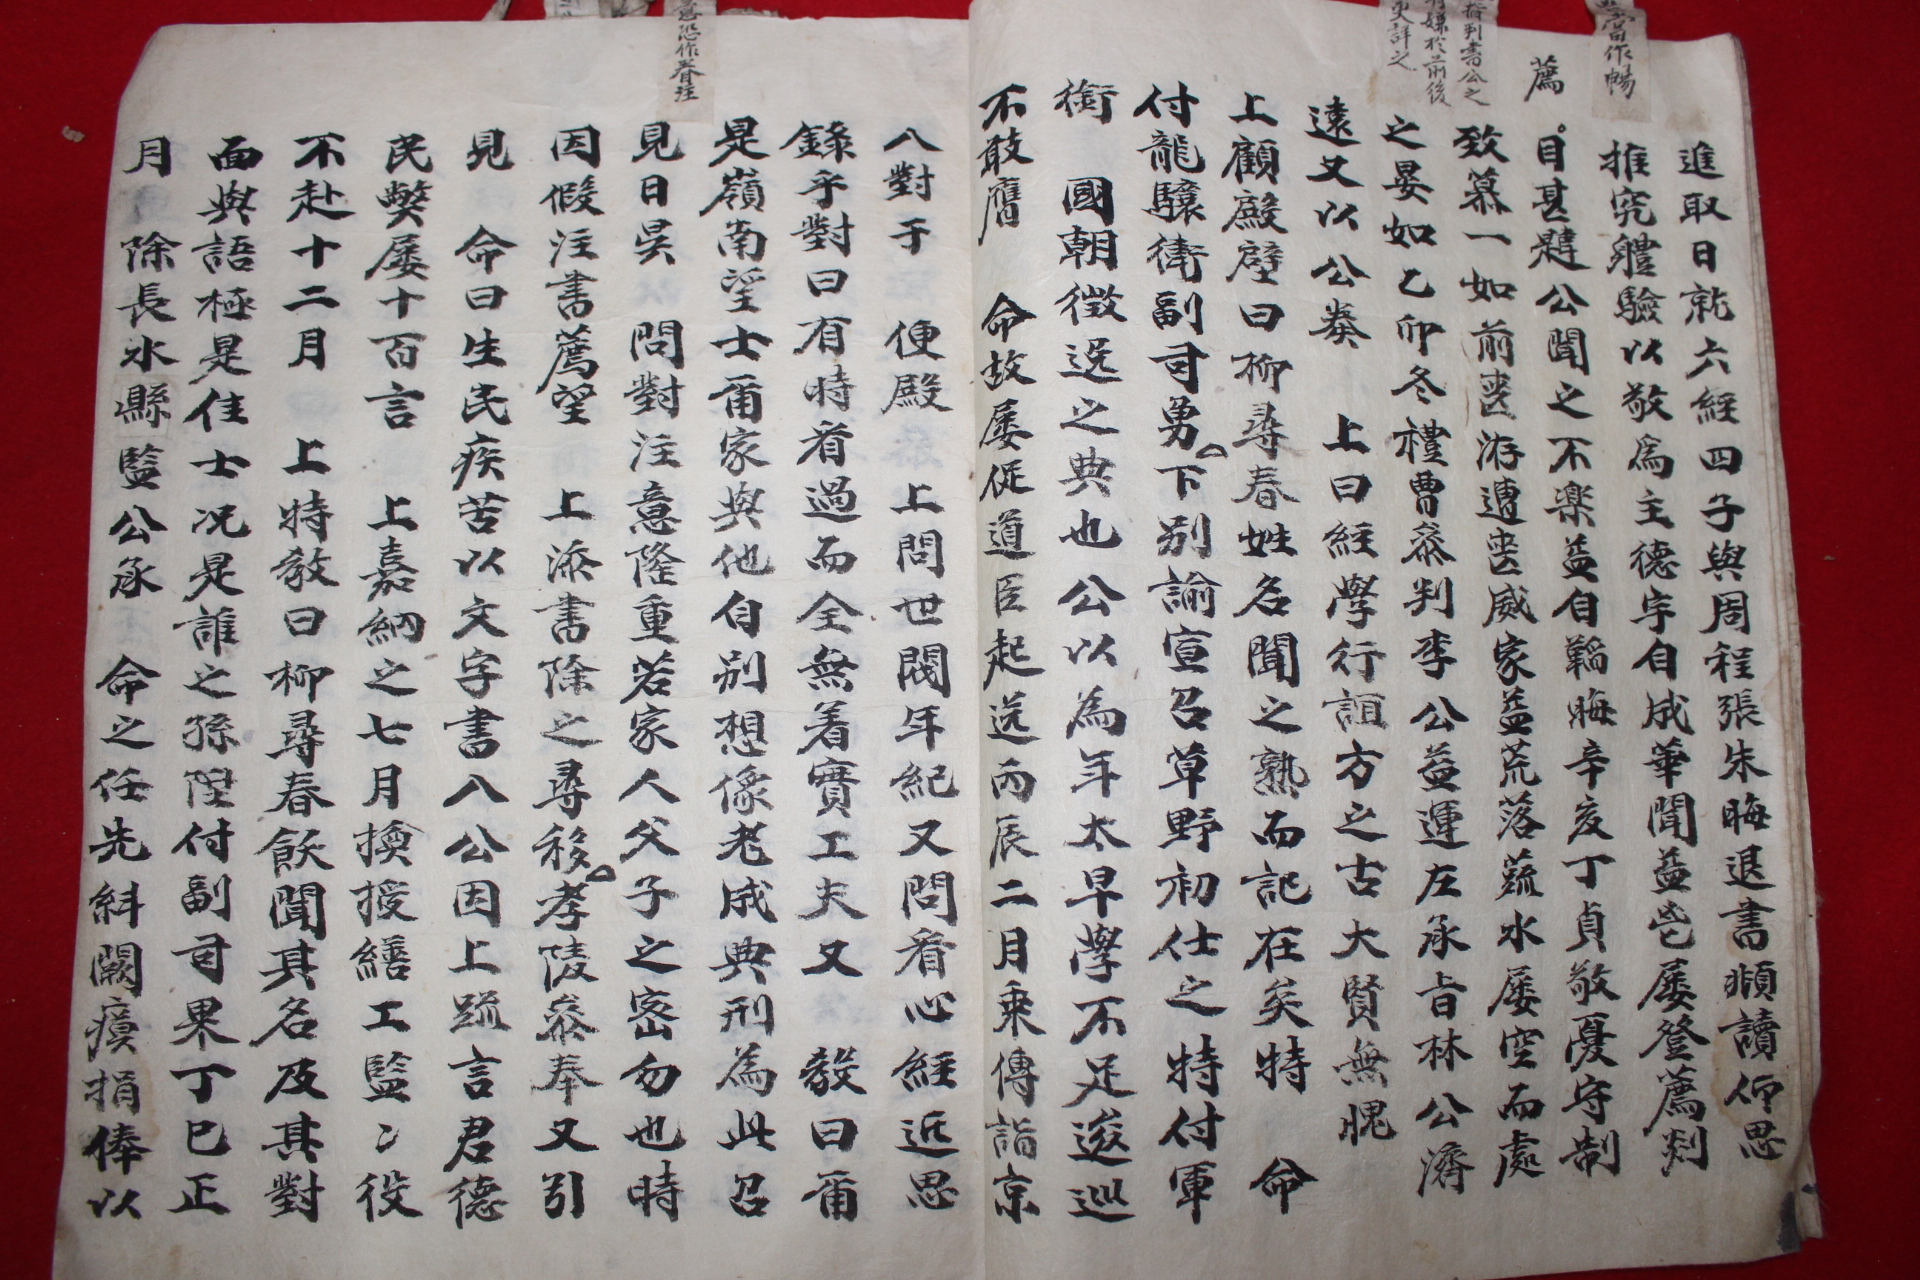 當作暢
指判書公之
嫌於前後
更詳之
意恐作眷注
薦
進取日就六經四子與周程張朱晦退書頻讀仰思
推究軆驗以敬爲主德宇自成華聞益邑屢登薦剡
目甚韙公聞之不楽益自韜晦辛亥丁貞敬憂守制
致慕一如前喪洊遭喪威家益荒落蔬水屢空而處
之晏如乙卯冬禮曹叅判李公益運左承旨林公濟
遠又以公奏 上曰經學行誼方之古大賢無愧
上顧殿壁曰柳尋春姓名聞之熟而記在矣特 命
付龍驤衛副司勇下别諭宣召草野初仕之特付軍
銜 國朝徵选之典也公以為年太早學不足逡巡
不敢膺 命故屡促道臣起送丙辰二月乘傳詣京
入對于 便殿 上問世閥年紀又問看心經近思
錄乎對曰有時看過而全無着實工夫又 敎曰甭
是嶺南望士甭家與他自别想像老成典刑為此召
見日昃 問對注意隆重若家人父子之密勿也時
因假注書薦望 上添書除之尋移孝陵叅奉又引
見 命曰生民疾苦以文字書入公因上疏言君德
民弊屡十百言 上嘉納之七月換授繕工監二役
不赴十二月 上特敎曰柳尋春飫聞其名及其對
面與語極是佳士况是誰之孫陞付副司果丁巳正
月 除長水縣監公承 命之任先糾闕瘼捐俸以